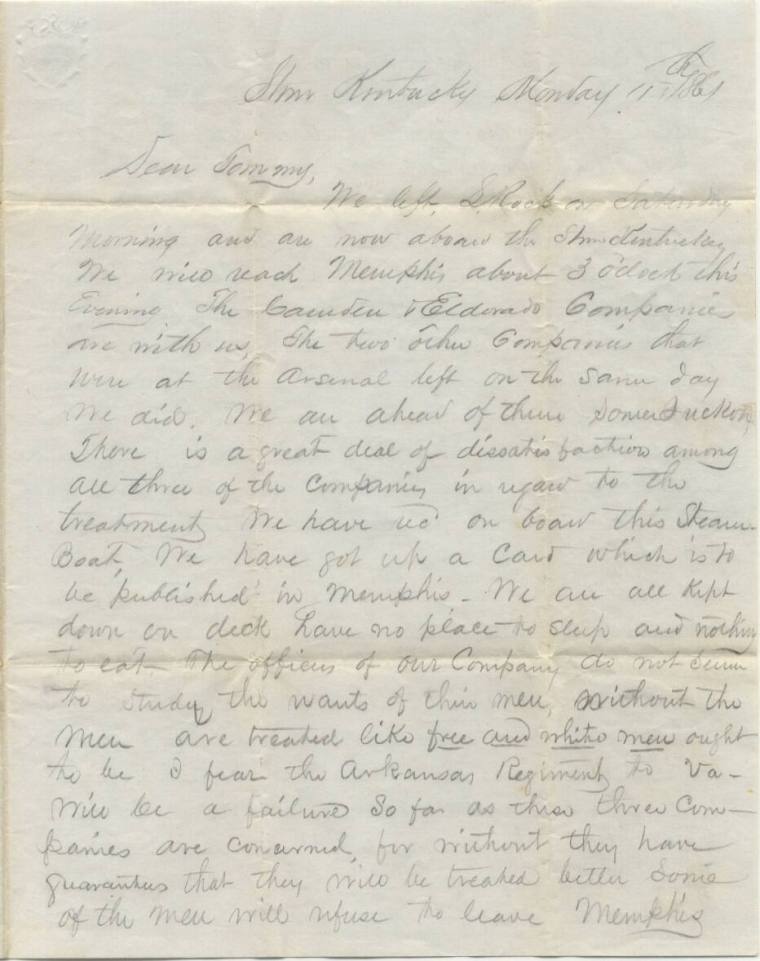 Stmr Kentucky Monday 1861
Dear Tommy,
We left L. Rock on Saturday
Morning and are now aboard the Stmr Kentucky
We will reach Memphis about 3 o'clock this
Evening The Camden & Eldorado Companies
are with us, The two other Companies that
were at the Arsenal left on the same day
We did. We are ahead of them
There is a great deal of dissatisfaction among
all three of the Companies in regard to the
treatment We have rec'd on board this Steam-
Boat, We have got up a Card which is to
be published in Memphis - We are all kept
down on deck have no place to sleep and nothing
to eat The officers of our Company do not seem
to study the wants of their men, without the
Men are treated like free and white men ought
to be I fear the Arkansas Regiment to Va-
Will be a failure So far as these three Com-
panies are concerned, for without they have
guarantees that they will be treated better Some
of the Men will refuse to leave Memphis